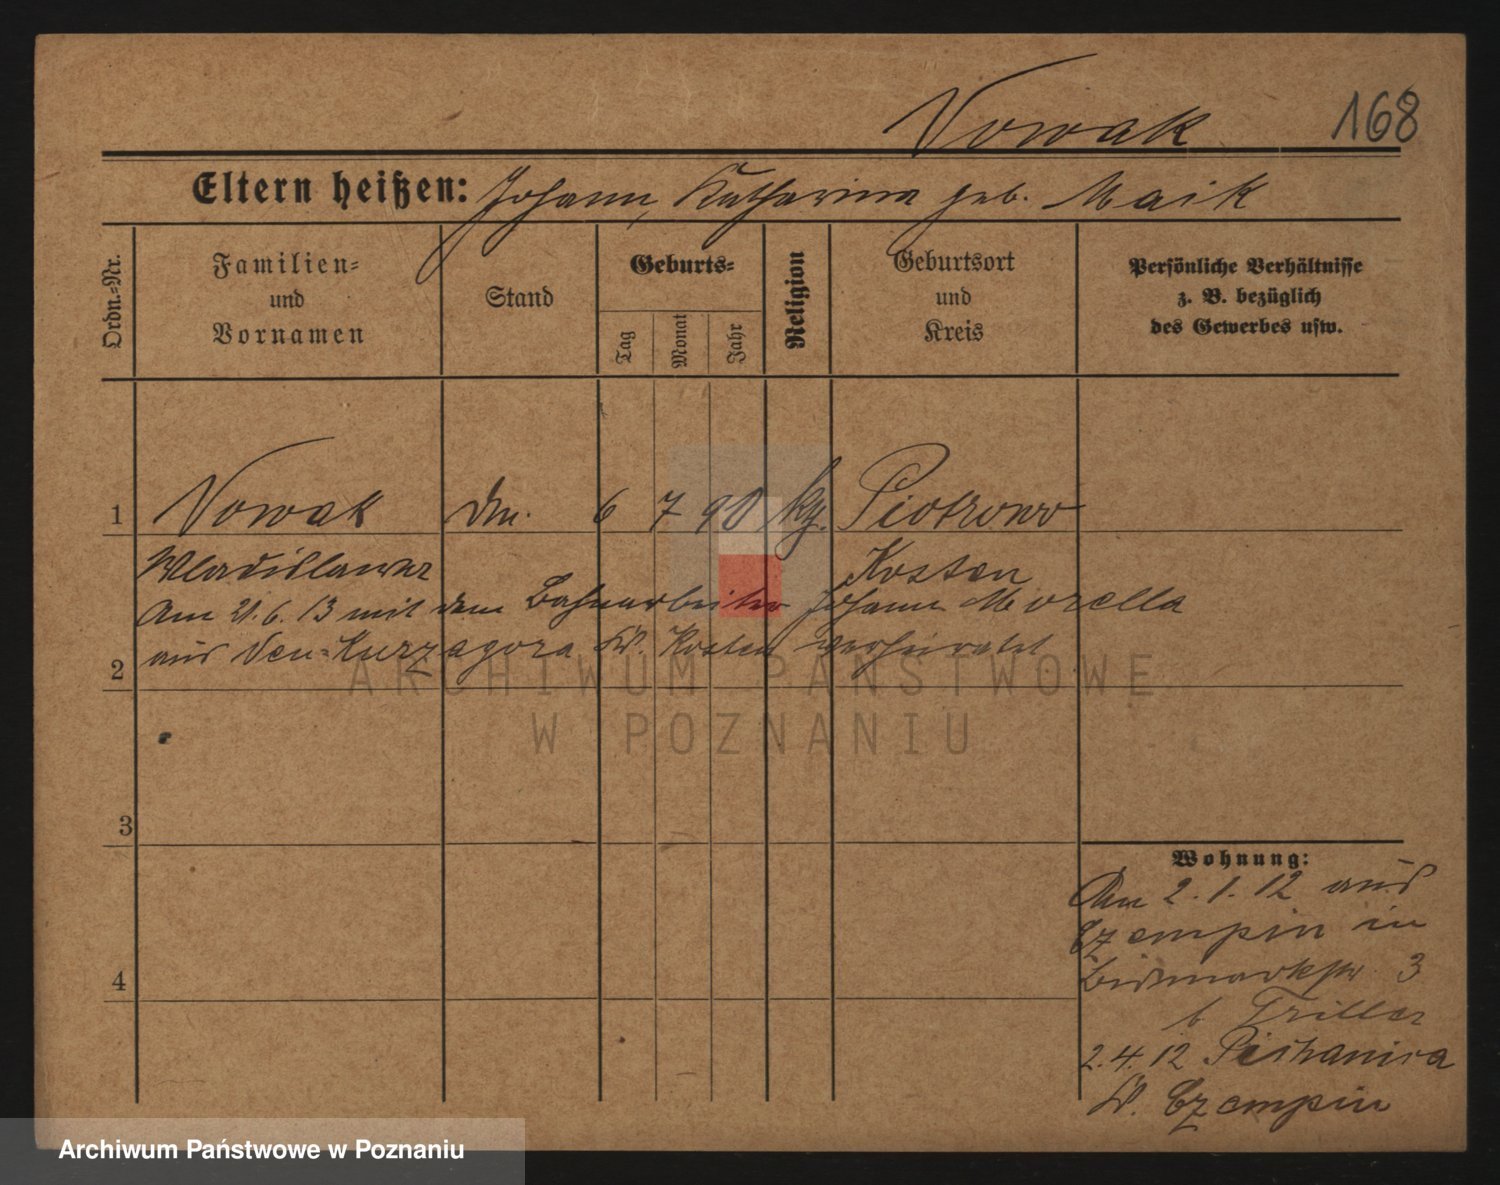 Nowak 168
Eltern heißen: Johann, Katharina geb. Maik
Ordn.-Nr.
Familien-
und
Vornamen
Stand
Geburts-
Tag
Monat
Jahr
Religion
Geburtsort
und
Kreis
Persönliche Verhältnisse
z. B. bezüglich
des Gewerbes usw.
1 Nowak 6 7 90 Piotrowo
Wladislawa Kosten
Am 21. 6. 13 mit dem Bahnarbeiter Johann Morella
2 aus Neu-Kurzagora K. Kosten verheiratet
ARCHIWUM PAŃSTWOWE
W POZNANIU
3
4
Wohnung:
Am 2. 1. 12 aus
Czempin in
Bismarckstr. 3
b Triller
2. 4. 12
K. Czempin
Archiwum Państwowe w Poznaniu